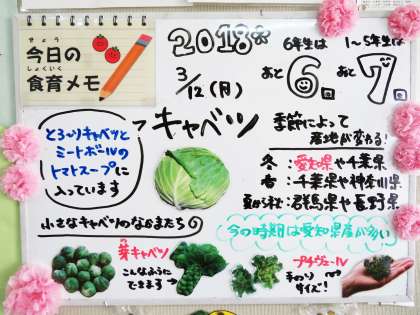 今日の
きょう
食育メモ
しょくいく
2018年
3/12(月)
6年生は
あと6回
1～5年生は
あと7回
キャベツ
とろ～りキャベツと
ミートボールの
トマトスープに
入っています
季節によって
産地が変わる!
冬:愛知県や千葉県
春:千葉県や神奈川県
夏から秋:群馬県や長野県
今の時期は愛知県産が多い
小さなキャベツのなかまたち
芽キャベツ
こんなように
できます
プチヴェール
手のり
サイズ!